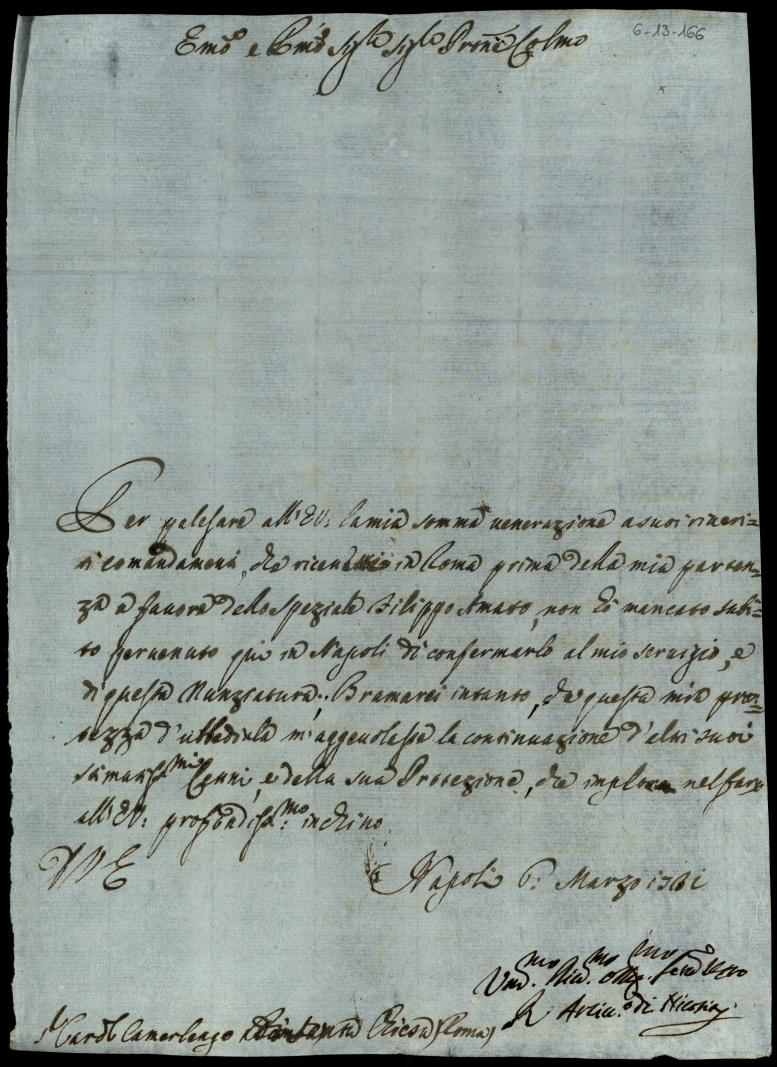 6-13-166
Em̃o e Rm̃o Sig.re Sig.re Pron̄e Colmo
Per palesare all'EV: la mia somma venerazione a suoi riveri=
ti comandamenti, che ricevei in Roma prima della mia parten=
za a favore dello speziale Filippo Amato, non hò mancato subi=
to pervenuto quì in Napoli di confermarlo al mio servizio, e
di questa Nunziatura; Bramarei intanto, che questa mia pron=
tezza d'ubbidirla m'aggevolasse la continuazione d'altri suoi
stimatiss.mi Cenni, e della sua Protezione, che imploro nel fare
all'EV: profondiss.mo inchino
DVE
Napoli 6: Marzo
Um.mo Div.mo Obbg.mo Serv.re Vero
Arciv.o di Nicosia
S.r Card.l Camerlengo di Santa Chiesa (Roma)